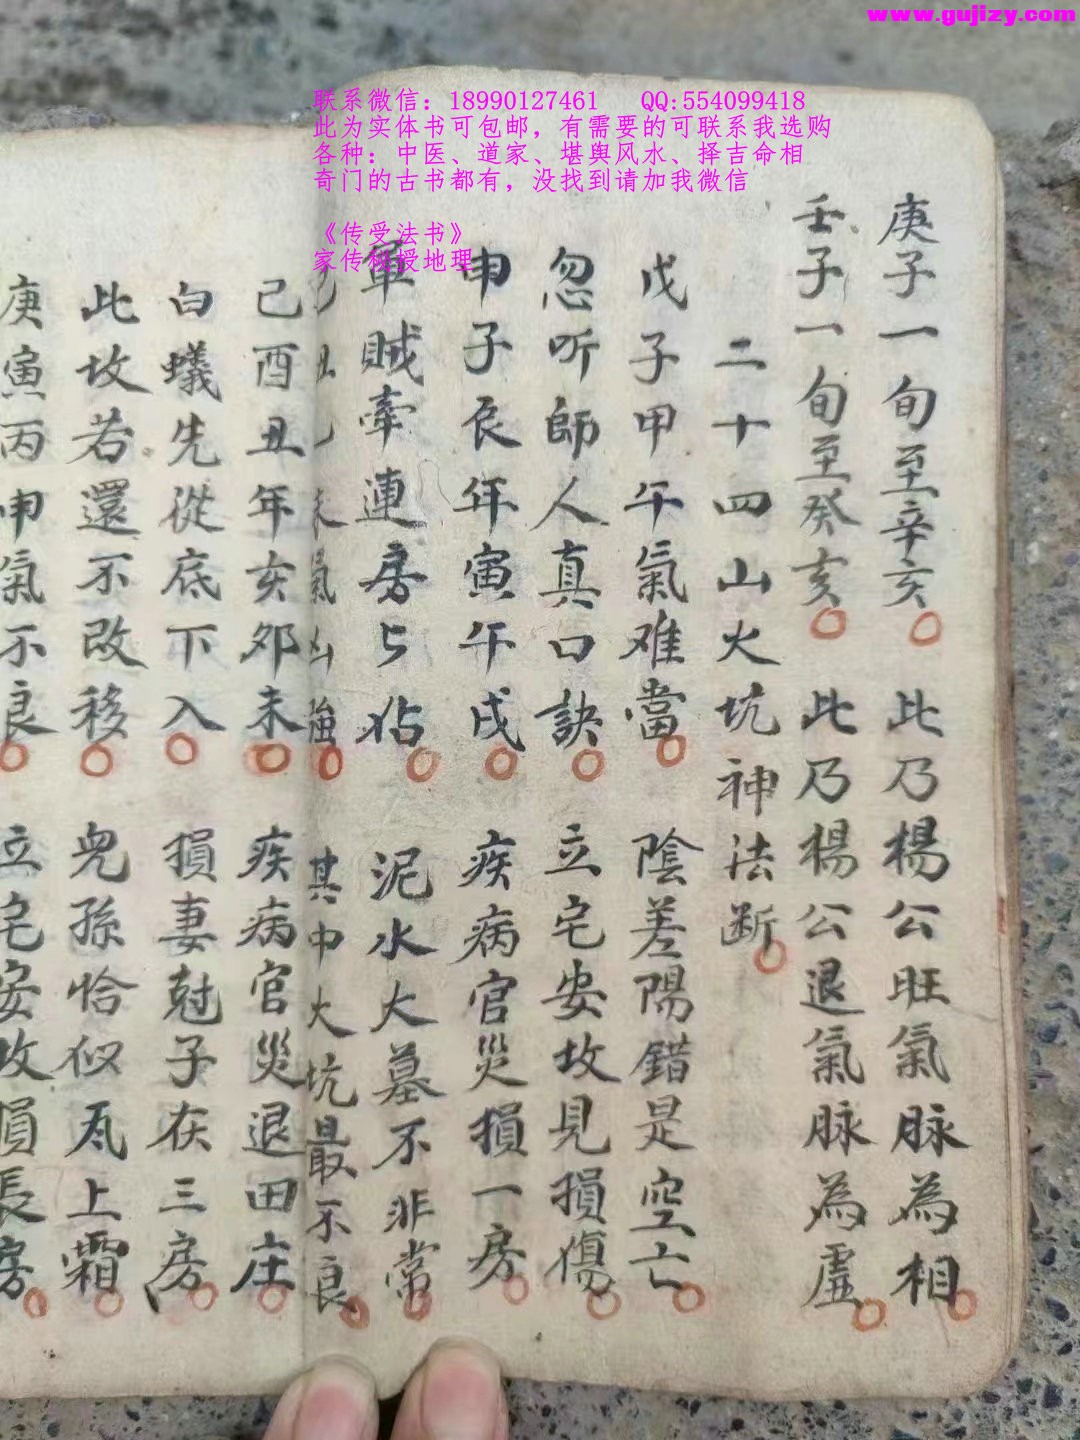 www.gujizy.com
联系微信：18990127461 QQ:554099418
此为实体书可包邮，有需要的可联系我选购
各种：中医、道家、堪舆风水、择吉命相
奇门的古书都有，没找到请加我微信
《传受法书》
家传秘授地理
庚子一旬至辛亥 此乃楊公旺氣脉為相
壬子一旬至癸亥 此乃楊公退氣脉為虛
二十四山火坑神法断
戊子甲午氣难當 陰差陽錯是空亡
忽听師人真口訣 立宅安坟見損傷
申子辰年寅午戌 疾病官災損一房
軍賊牽連房与牯 泥水大墓不非常
丑 未氣山強 其中大坑最不良
己酉丑年亥夘未 疾病官災退田庄
白蟻先從底下入 損妻尅子在三房
此坟若還不改移 兒孫恰似瓦上霜
庚寅丙申氣不良 立宅安坟損長房